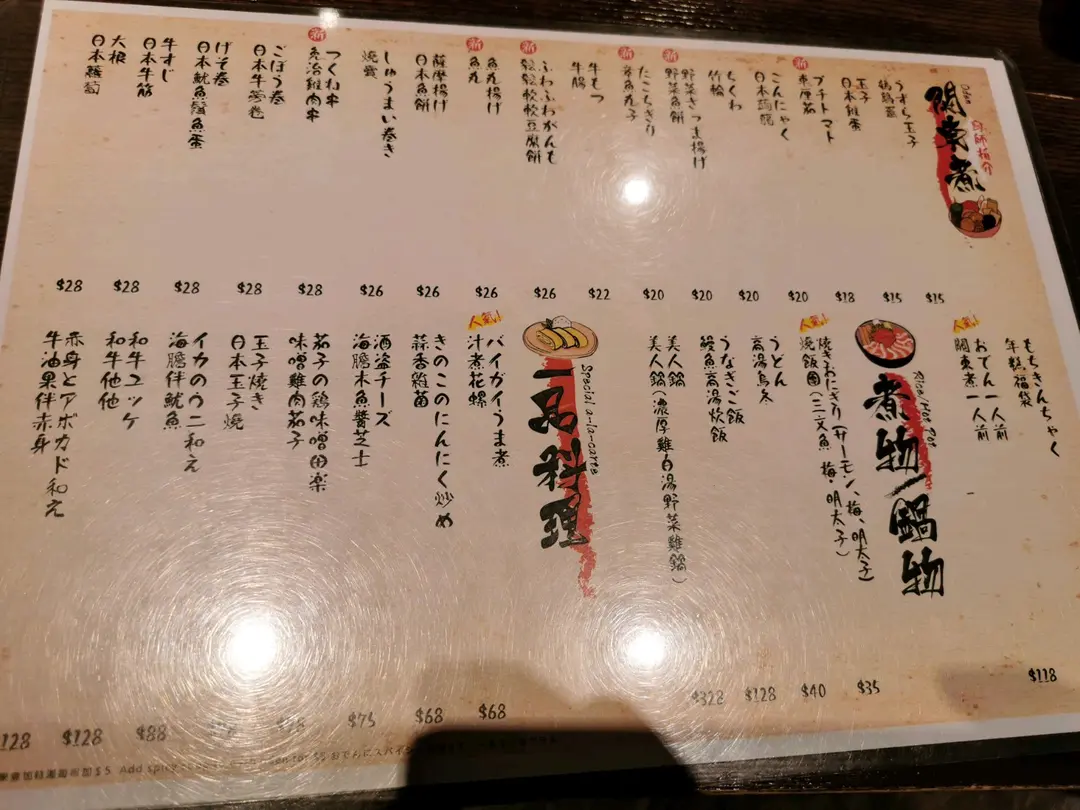 関東煮
Oden
廚師推介
うずら玉子
鵪鶉蛋
$15
玉子
日本雞蛋
$15
新
プチトマト
車厘茄
$18
こんにゃく
日本蒟蒻
$20
ちくわ
竹輪
$20
新
野菜さつま揚げ
野菜魚餅
$20
新
たこちぎり
章魚丸子
$20
牛もつ
牛腸
$22
新
ふわふわがんも
鬆鬆軟軟豆腐餅
$26
新
魚丸揚げ
魚丸
$26
薩摩揚げ
日本魚餅
$26
しゅうまい巻き
燒賣
$26
新
つくね串
免治雞肉串
$28
ごぼう巻
日本牛蒡卷
$28
げそ巻
日本魷魚鬚魚蛋
$28
牛すじ
日本牛筋
$28
大根
日本蘿蔔
$28
もちきんちゃく
年糕福袋
人氣!
おでん一人前
關東煮一人前
$118
煮物/鍋物
Rice/Hot Pot
人氣!
焼きおにぎり(サーモン、梅、明太子)
燒飯團(三文魚、梅、明太子)
$35
うどん
高湯烏冬
$40
うなぎご飯
鰻魚高湯炊飯
$128
美人鍋
美人鍋(濃厚雞白湯野菜雞鍋)
$328
一品料理
Special a-la-carte
人氣!
バイガイうま煮
汁煮花螺
$68
きのこのにんにく炒め
蒜香雜菌
$68
酒盗チーズ
海膽木魚醬芝士
$75
茄子の鶏味噌田楽
味噌雞肉茄子
玉子焼き
日本玉子燒
イカのウニ和え
海膽伴魷魚
$88
和牛ユッケ
和牛他他
$128
赤身とアボカド和え
牛油果伴赤身
128
$5 Add spicy